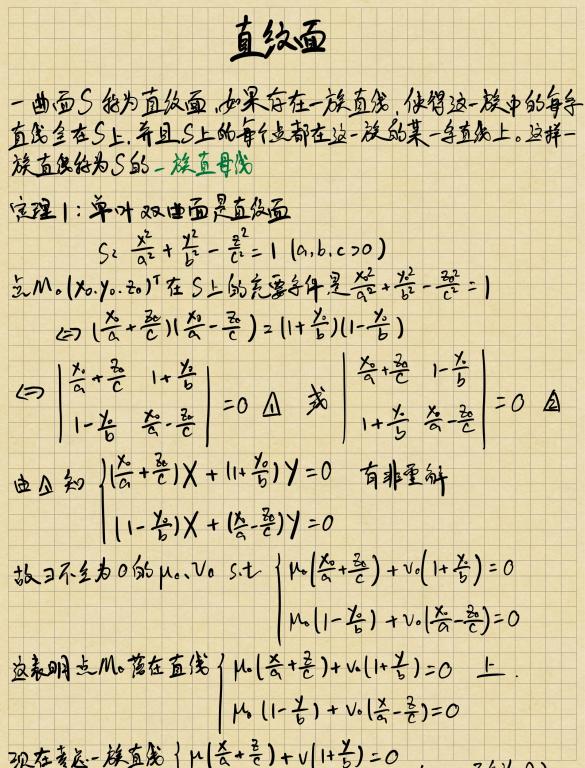 直纹面
一曲面S称为直纹面,如果存在一族直线,使得这一族中的每条
直线全在S上,并且S上的每个点都在这一族的某一条直线上。这样一
族直线称为S的一族直母线
定理1:单叶双曲面是直纹面
S: x²/a² + y²/b² - z²/c² = 1 (a,b,c>0)
点M₀(x₀,y₀,z₀)ᵀ在S上的充要条件是 x₀²/a² + y₀²/b² - z₀²/c² = 1
⇔ (x₀/a + z₀/c)(x₀/a - z₀/c) = (1+y₀/b)(1-y₀/b)
⇔ | x₀/a + z₀/c  1+y₀/b | | x₀/a + z₀/c  1-y₀/b |
| 1-y₀/b  x₀/a - z₀/c | =0 △1 或 | 1+y₀/b  x₀/a - z₀/c | =0 △2
由△1知 { (x₀/a + z₀/c)X + (1+y₀/b)Y = 0 有非零解
(1-y₀/b)X + (x₀/a - z₀/c)Y = 0
故∃不全为0的μ₀,ν₀ s.t { μ₀(x₀/a + z₀/c) + ν₀(1+y₀/b) = 0
μ₀(1-y₀/b) + ν₀(x₀/a - z₀/c) = 0
这表明点M₀落在直线 { μ₀(x/a + z/c) + ν₀(1+y/b) = 0 上.
μ₀(1-y/b) + ν₀(x/a - z/c) = 0
现在考虑一族直线 { μ(x/a + z/c) + ν(1+y/b) = 0